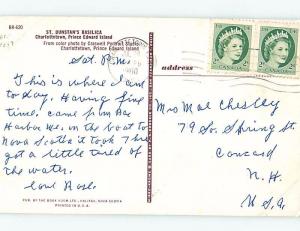 BR-620
ST. DUNSTAN'S BASILICA
Charlottetown, Prince Edward Island
From color photo by Carswell Portrait Studio
Charlottetown, Prince Edward Island
Sat. P.M.
This is where I am
to day. Having fine
time, came from Bar
Harbor Me. on the boat to
Nova Scotia it took 7 hrs
got a little tired of
the water.
Love Rose.
address
Mrs Mae Chesley
79 So. Spring St
Concord
N. H.
U. S. A
PUB. BY THE BOOK ROOM LTD., HALIFAX, NOVA SCOTIA
PRINTED IN U.S.A.